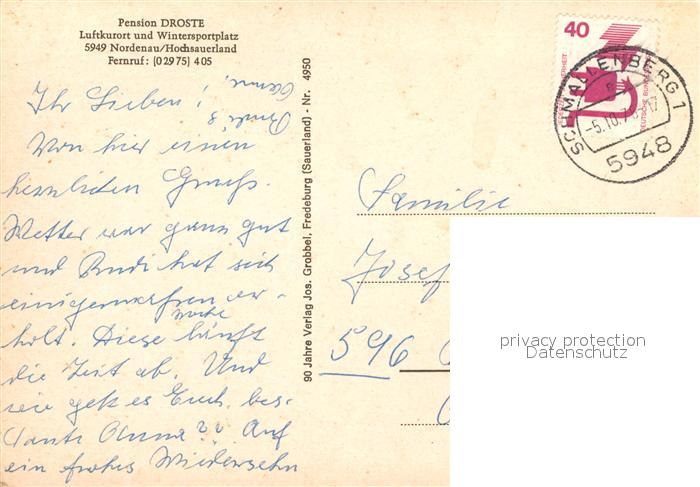 Pension DROSTE
Luftkurort und Wintersportplatz
5949 Nordenau/Hochsauerland
Fernruf: (0 29 75) 4 05
Ihr Lieben!
Von hier einen
herzlichen Gruß.
Wetter war ganz gut
und Rudi hat sich
einigermaßen er-
holt. Diese Woche läuft
die Zeit ab. Und
wie geht es Euch, bes.
Tante Anna?? Auf
ein frohes Wiedersehn
Rudi &
90 Jahre Verlag Jos. Grobbel, Fredeburg (Sauerland) - Nr. 4950
40
SCHMALLENBERG 1
-5.10.7
5948
Familie
Josef
596
privacy protection
Datenschutz